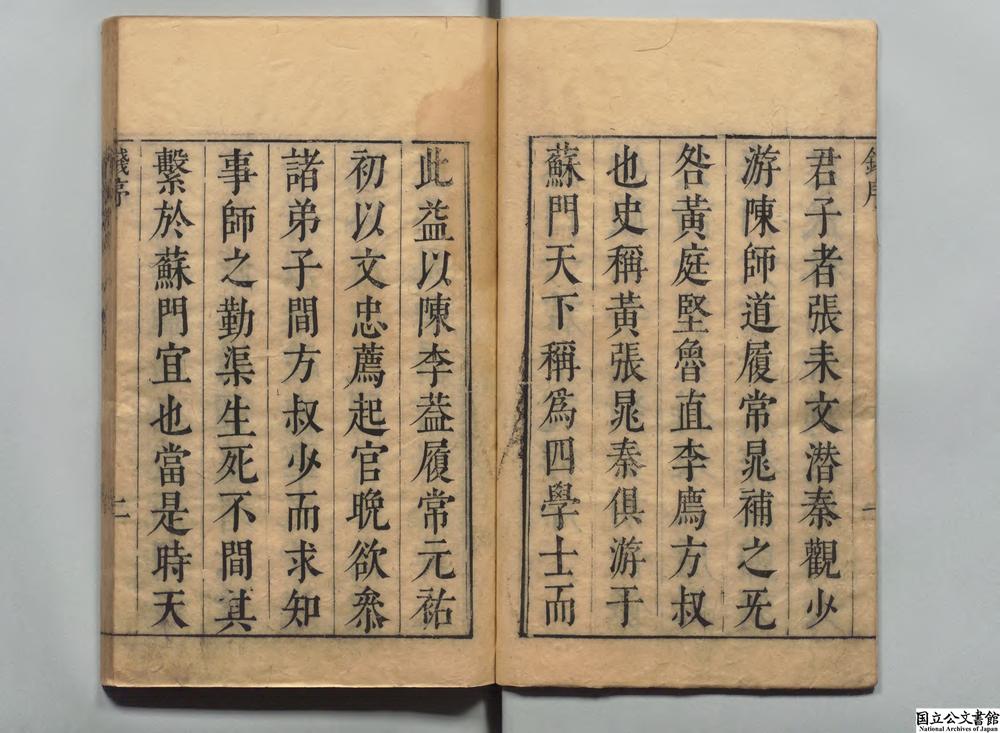 君子者張耒文潛秦觀少
游陳師道履常晁補之无
咎黃庭堅魯直李廌方叔
也史稱黃張晁秦俱游于
蘇門天下稱爲四學士而
此益以陳李葢履常元祐
初以文忠薦起官晚欲叅
諸弟子間方叔少而求知
事師之勤渠生死不間其
繫於蘇門宜也當是時天
二
国立公文書館
National Archives of Japan